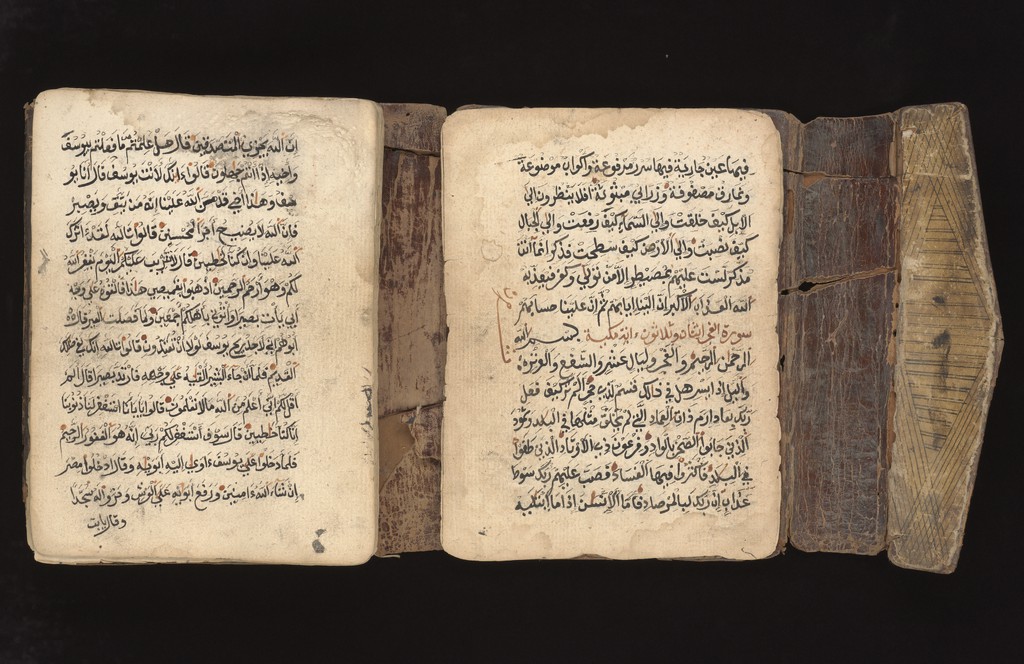 فيها عين جارية فيها سرر مرفوعة وأكواب موضوعة
ونمارق مصفوفة وزرابي مبثوثة أفلا ينظرون إلى
الإبل كيف خلقت وإلى السماء كيف رفعت وإلى الجبال
كيف نصبت وإلى الأرض كيف سطحت فذكر إنما أنت
مذكر لست عليهم بمصيطر إلا من تولى وكفر فيعذبه
الله العذاب الأكبر إن إلينا إيابهم ثم إن علينا حسابهم
سورة الفجر اثنتان وثلاثون ءاية مكية بسم الله
الرحمن الرحيم والفجر وليال عشر والشفع والوتر
واليل إذا يسر هل في ذلك قسم لذي حجر ألم تر كيف فعل
ربك بعاد إرم ذات العماد التي لم يخلق مثلها في البلد وثمود
الذين جابوا الصخر بالواد وفرعون ذي الأوتاد الذين طغوا
في البلد فأكثروا فيها الفساد فصب عليهم ربك سوط
عذاب إن ربك لبالمرصد فأما الإنسن إذا ما ابتليه
إن الله يجزي المتصدقين قال هل علمتم ما فعلتم بيوسف
وأخيه إذ أنتم جهلون قالوا أءنك لأنت يوسف قال أنا يو
سف وهذا أخي قد من الله علينا إنه من يتق ويصبر
فإن الله لا يضيع أجر المحسنين قالوا تالله لقد ءاثرك
الله علينا وإن كنا لخطئين قال لا تثريب عليكم اليوم يغفر الله
لكم وهو أرحم الرحمين اذهبوا بقميصي هذا فألقوه على وجه
أبي يأت بصيرا وأتوني بأهلكم أجمعين ولما فصلت العير قال
أبوهم إني لأجد ريح يوسف لولا أن تفندون قالوا تالله إنك لفي ضللك
القديم فلما أن جاء البشير ألقيه على وجهه فارتد بصيرا قال ألم
أقل لكم إني أعلم من الله ما لا تعلمون قالوا يأبانا استغفر لنا ذنوبنا
إنا كنا خطئين قال سوف أستغفر لكم ربي إنه هو الغفور الرحيم
فلما دخلوا على يوسف ءاوى إليه أبويه وقال ادخلوا مصر
إن شاء الله ءامنين ورفع أبويه على العرش وخروا له سجدا
وقال يأبت